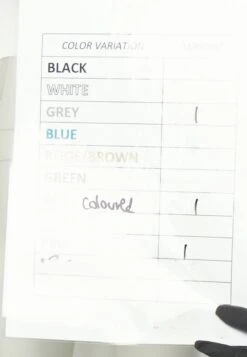 COLOR VARIATION
BLACK
WHITE
GREY 1
BLUE
BEIGE/BROWN
GREEN
Coloured 1
1